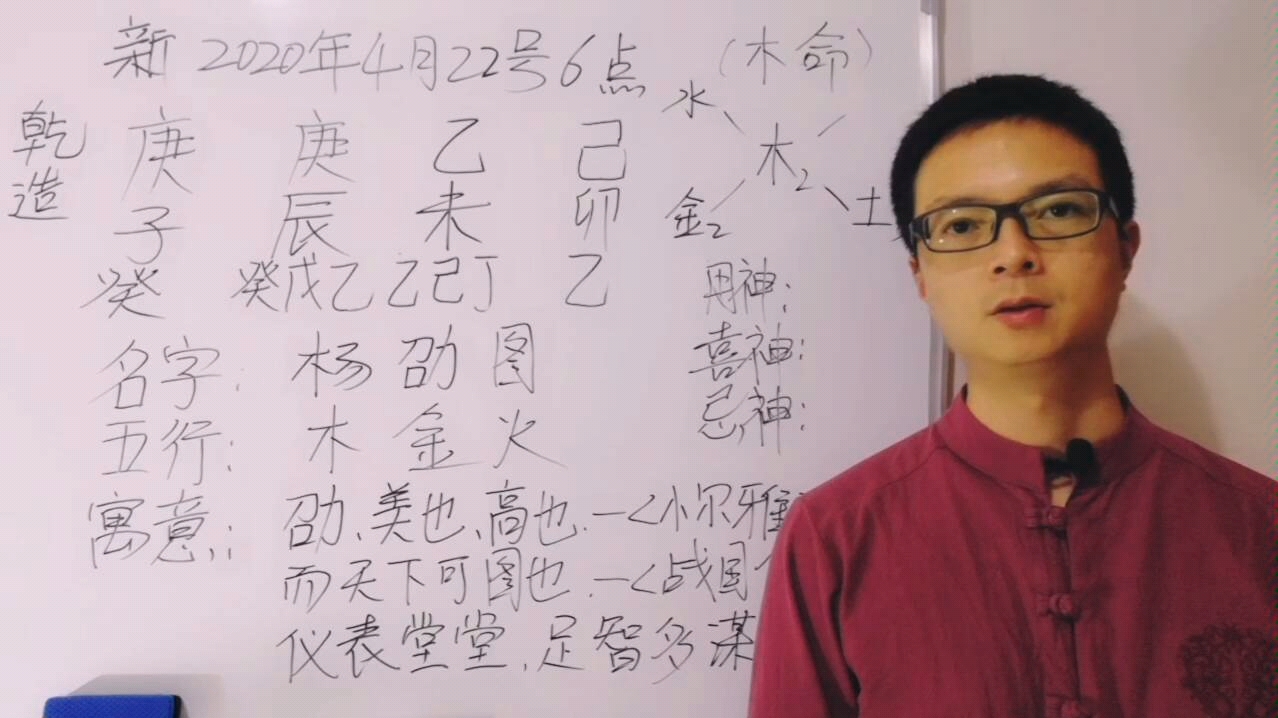 新 2020年4月22号6点 (木命)
乾造 庚 庚 乙 己
子 辰 未 卯
癸 癸戊乙 乙己丁 乙
水
木2
金2 土
用神:
喜神:
忌神:
名字: 杨 劭 图
五行: 木 金 火
寓意: 劭、美也、高也.—<小尔雅
而天下可图也.—<战国
仪表堂堂,足智多谋